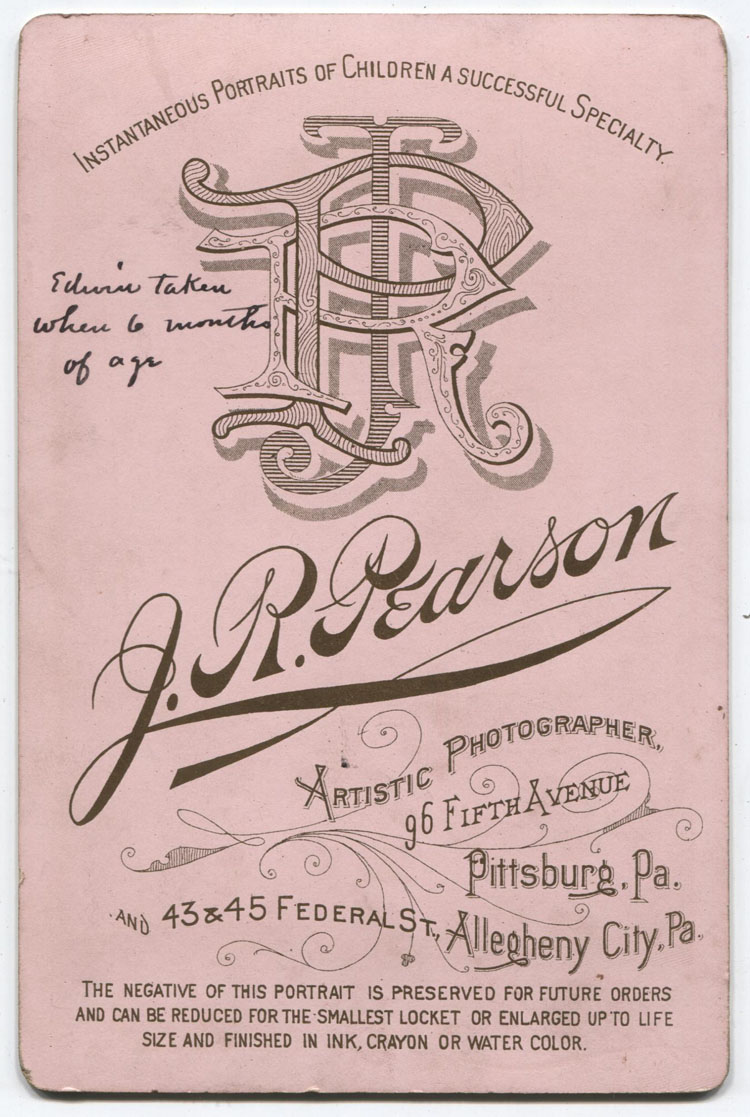 Instantaneous Portraits of Children a successful Specialty.
JRP
Edwin taken
when 6 months
of age
J. R. Pearson
Artistic Photographer,
96 Fifth Avenue
Pittsburg, Pa.
and 43 & 45 Federal St., Allegheny City, Pa.
THE NEGATIVE OF THIS PORTRAIT IS PRESERVED FOR FUTURE ORDERS
AND CAN BE REDUCED FOR THE SMALLEST LOCKET OR ENLARGED UP TO LIFE
SIZE AND FINISHED IN INK, CRAYON OR WATER COLOR.